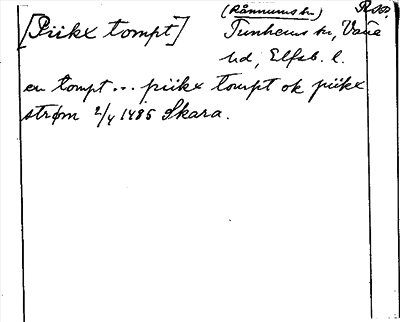 (Rånnums sn) Rso.
[Piikx tompt] Tunhems sn, Väne
hd, Elfsb. l.
en tompt... piikx tompt ok piikx
strøm 2/4 1485 Skara.